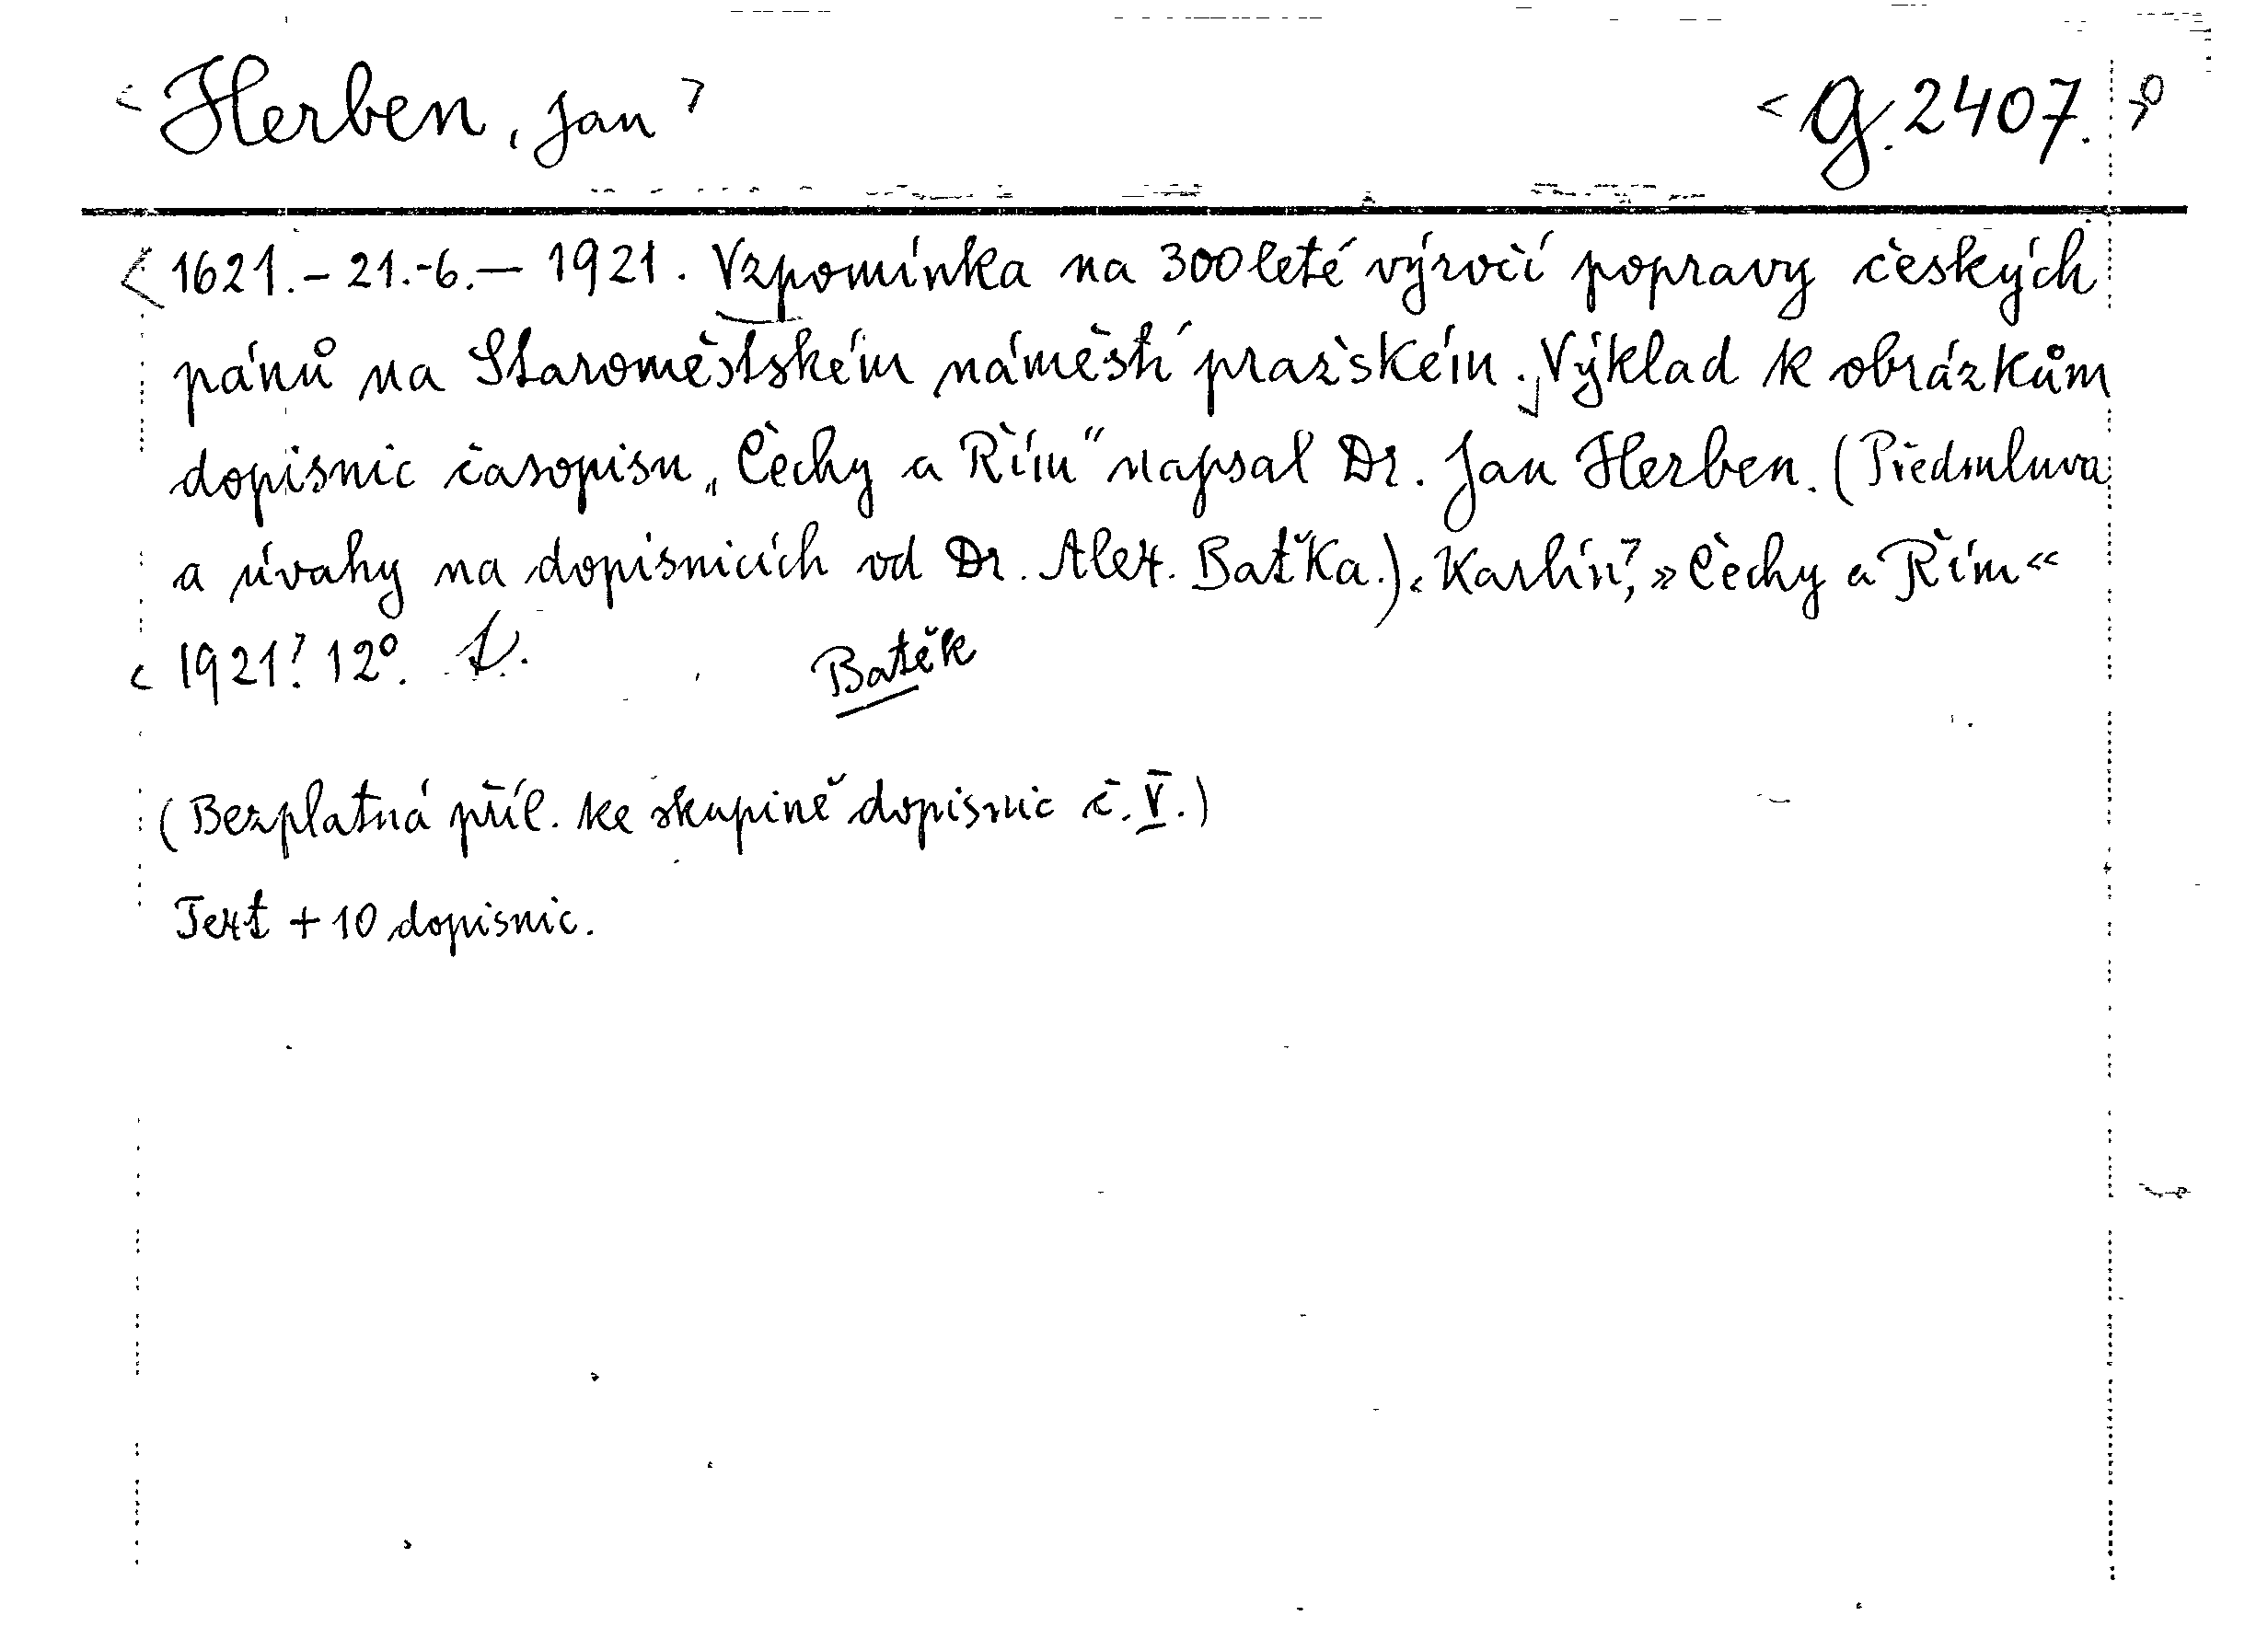 <Herben, Jan>
<G. 2407.>
<1621.-21.-6.— 1921. Vzpomínka na 300leté výročí popravy českých
pánů na Staroměstském náměstí pražském. Výklad k obrázkům
dopisnic časopisu „Čechy a Řím“ napsal Dr. Jan Herben. (Předmluva
a úvahy na dopisnicích od Dr. Alex. Baťka.) <Karlín>, »Čechy a Řím«
<1921>. 12°.
Batěk
(Bezplatná příl. ke skupině dopisnic č. V.)
Text + 10 dopisnic.